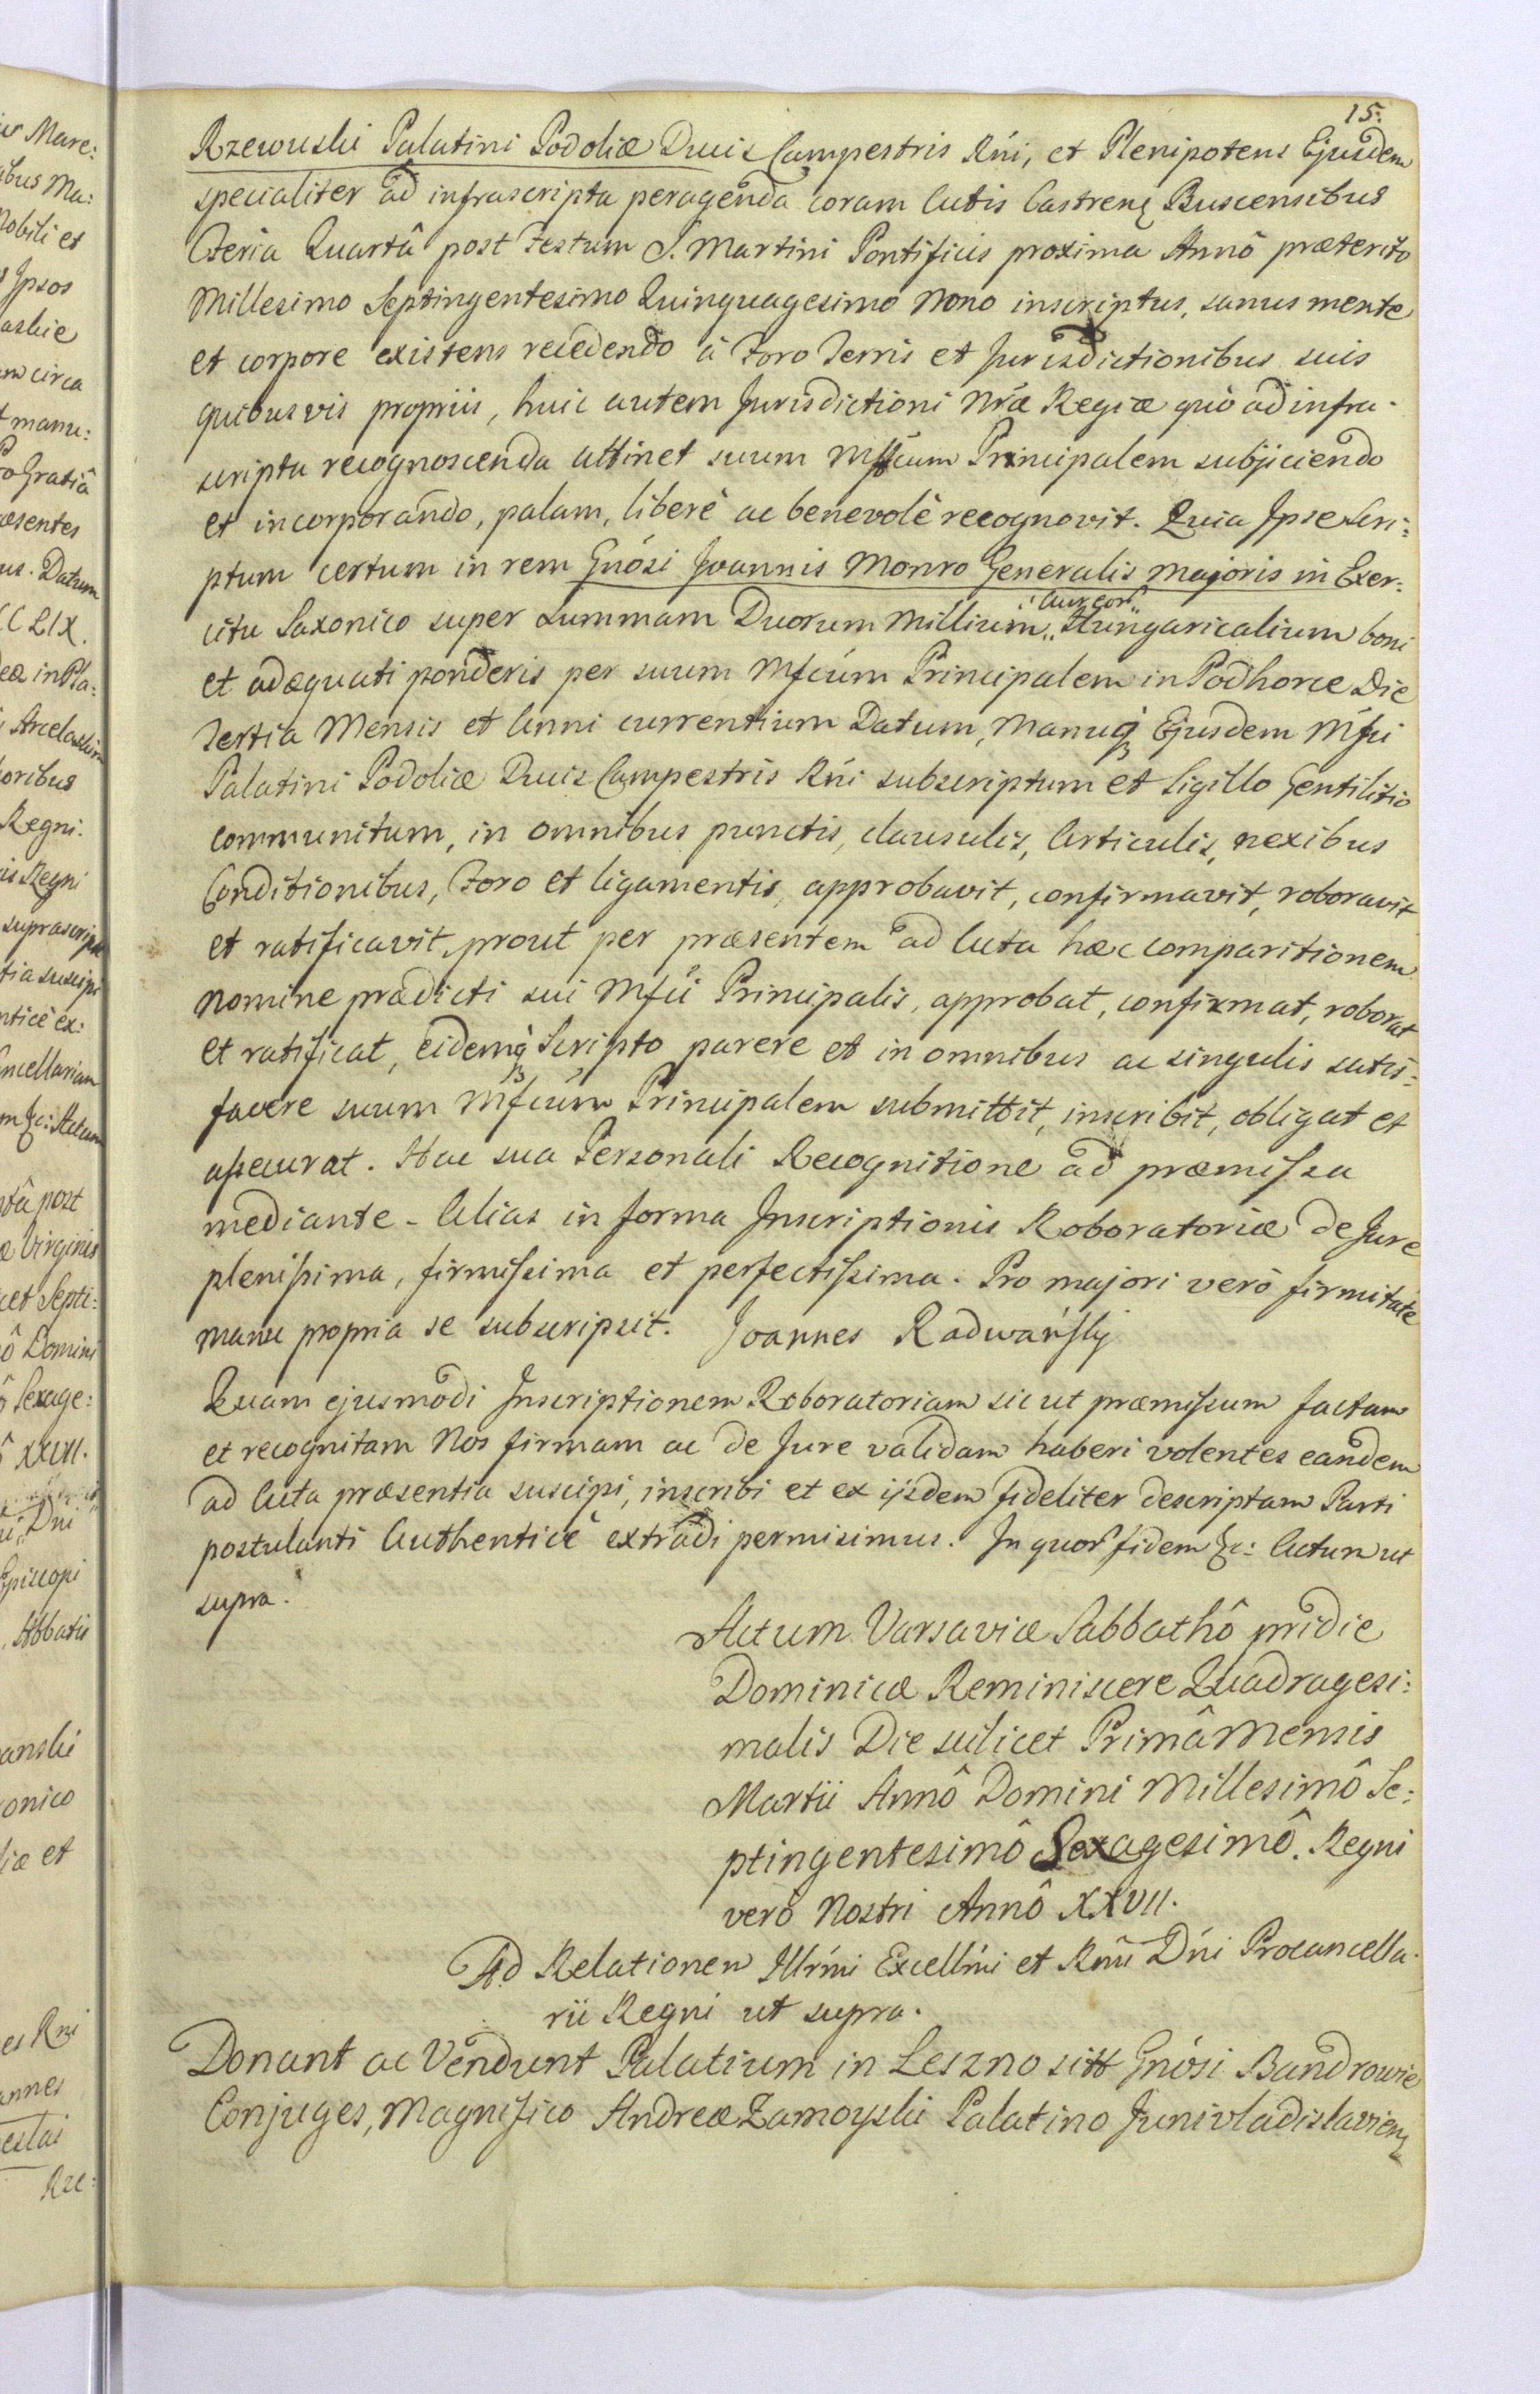 15.
Rzewuski Palatini Podoliæ Ducis Campestris Rńi, et Plenipotens Ejusdem
specialiter ad infrascripta peragenda coram Actis Castrens Buscensibus
Feria Quartâ post Festum S. Martini Pontificis proxima Annô præterito
Millesimo Septingentesimo Quinquagesimo Nono inscriptus, sanus mente
et corpore existens recedendo à Foro Terris et Jurisdictionibus suis
quibusvis propriis, huic autem Jurisdictioni Nrǽ Regiæ quò ad infra-
scripta recognoscenda attinet suum Mfcum Principalem subjiciendo
et incorporando, palam, liberè ac benevolè recognovit. Quia Ipse Scri:
ptum certum in rem Gnósi Joannis Monro Generalis Majoris in Exer:
citu Saxonico super summam Duorum Millium Aureor Hungaricalium boni
et adæquati ponderis per suum Mfcúm Principalem in Podhorce Die
Tertia Mensis et Anni currentium Datum, Manuq Ejusdem Mfci
Palatini Podoliæ Ducis Campestris Rńi subscriptum et Sigillo Gentilitio
communitum, in omnibus punctis, clausulis, Articulis, nexibus
Conditionibus, Foro et ligamentis, approbavit, confirmavit, roboravit
et ratificavit, prout per præsentem ad Acta hæc comparitionem
nomine prædicti sui Mfci Principalis, approbat, confirmat, roborat
et ratificat, eidemq Scripto parere et in omnibus ac singulis satis:
facere suum Mfcúm Principalem submittit, inscribit, obligat et
assecurat. Hac sua Personali Recognitione ad præmissa
mediante. Alias in forma Inscriptionis Roboratoriæ de Jure
plenissima, firmissima et perfectissima. Pro majori verò firmitate
manu propria se subscripsit. Joannes Radwański
Quam ejusmodi Inscriptionem Roboratoriam sic ut præmissum factam
et recognitam Nos firmam ac de Jure validam haberi volentes eandem
ad Acta præsentia suscipi, inscribi et ex ijsdem fideliter descriptam Parti
postulanti Authenticè extradi permisimus. In quor fidem &c: Actum ut
supra.
Actum Varsaviæ Sabbathô pridie
Dominicæ Reminiscere Quadragesi:
malis Die scilicet Primâ Mensis
Martii Annô Domini Millesimô Se:
ptingentesimô Sexagesimô. Regni
verò Nostri Annô XXVII.
Ad Relationem Illrńi Excellńi et Rńii Dńi Procancella-
rii Regni ut supra.
Donant ac Vendunt Palatium in Leszno sitt Gnósi Bandrowie
Conjuges, Magnifico Andreæ Zamoyski Palatino Junivladislaviens